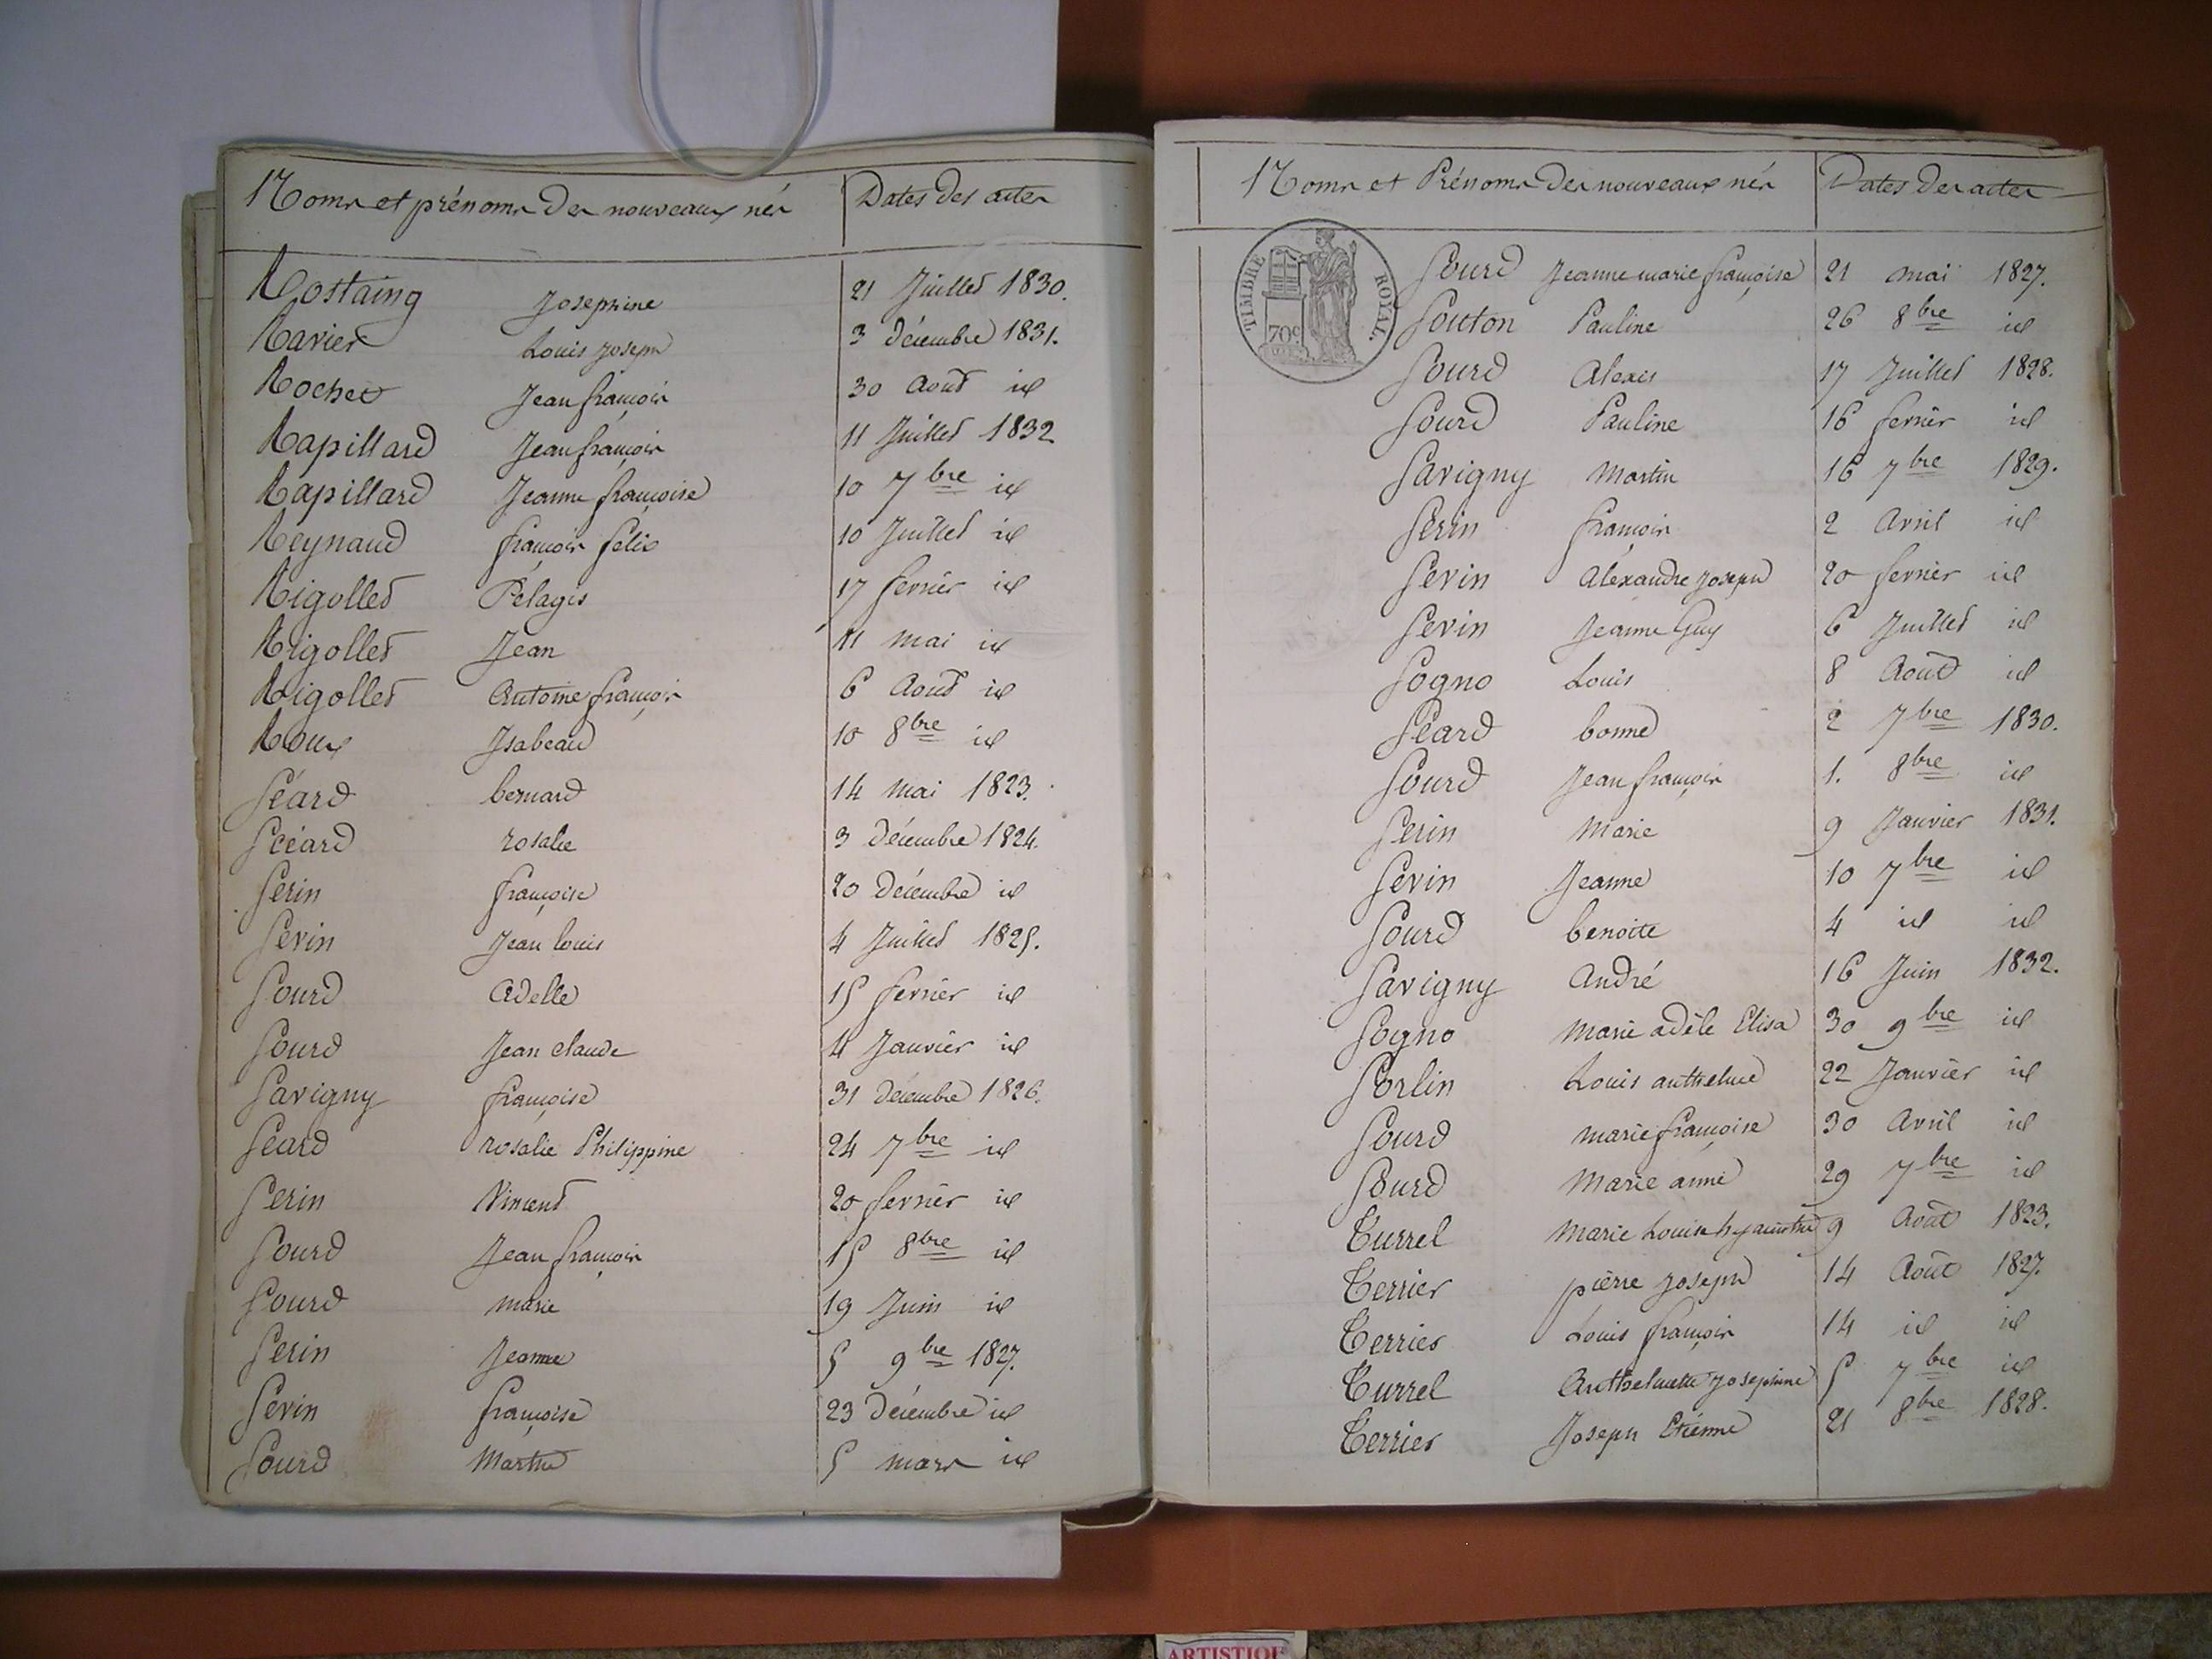 Noms et prénoms des nouveaux nés Dates des actes
Rostaing Josephine 21 Juillet 1830.
Ravier Louis Joseph 3 décembre 1831.
Rochet Jean françois 30 Aout id
Rapillard Jean françois 11 Juillet 1832
Rapillard Jeanne françoise 10 7bre id
Reynaud françois felix 10 Juillet id
Rigollet Pélagie 17 fevrier id
Rigollet Jean 11 mai id
Rigollet Antoine françois 6 Aout id
Roux Isabeau 10 8bre id
Séard bernard 14 mai 1823.
Scéard rosalie 3 décembre 1824.
Serin françoise 20 décembre id
Sevin Jean louis 4 Juillet 1825.
Sourd Adelle 15 fevrier id
Sourd Jean claude 4 Janvier id
Savigny françoise 31 décembre 1826.
Séard rosalie Philippine 24 7bre id
Serin Vincent 20 fevrier id
Sourd Jean françois 15 8bre id
Sourd marie 19 Juin id
Serin Jeanne 5 9bre 1827.
Sevin françoise 23 décembre id
Sourd Marthe 5 mars id
Noms et Prénoms des nouveaux nés Dates des actes
TIMBRE ROYAL.
70c
Sourd Jeanne marie françoise 21 mai 1827.
Souton Pauline 26 8bre id
Sourd Alexis 17 Juillet 1828.
Sourd Pauline 16 fevrier id
Savigny Martin 16 7bre 1829.
Serin françois 2 Avril id
Sevin Aléxandre Joseph 20 fevrier id
Sevin Jeanne Guy 6 Juillet id
Sogno Louis 8 Août id
Séard bonne 2 7bre 1830.
Sourd Jean françois 1. 8bre id
Serin Marie 9 Janvier 1831.
Sevin Jeanne 10 7bre id
Sourd benoite 4 id id
Savigny André 16 Juin 1832.
Sogno Marie adèle Elisa 30 9bre id
Sorlin Louis anthelme 22 Janvier id
Sourd marie françoise 30 Avril id
Sourd Marie anne 29 7bre id
Turrel Marie Louise hyacinthe 9 Août 1823.
Terrier pierre Joseph 14 Août 1827.
Terrier Louis françois 14 id id
Turrel Anthelmette Josephine 5 7bre id
Terrier Joseph Etiénne 21 8bre 1828.
ARTISTIQUE